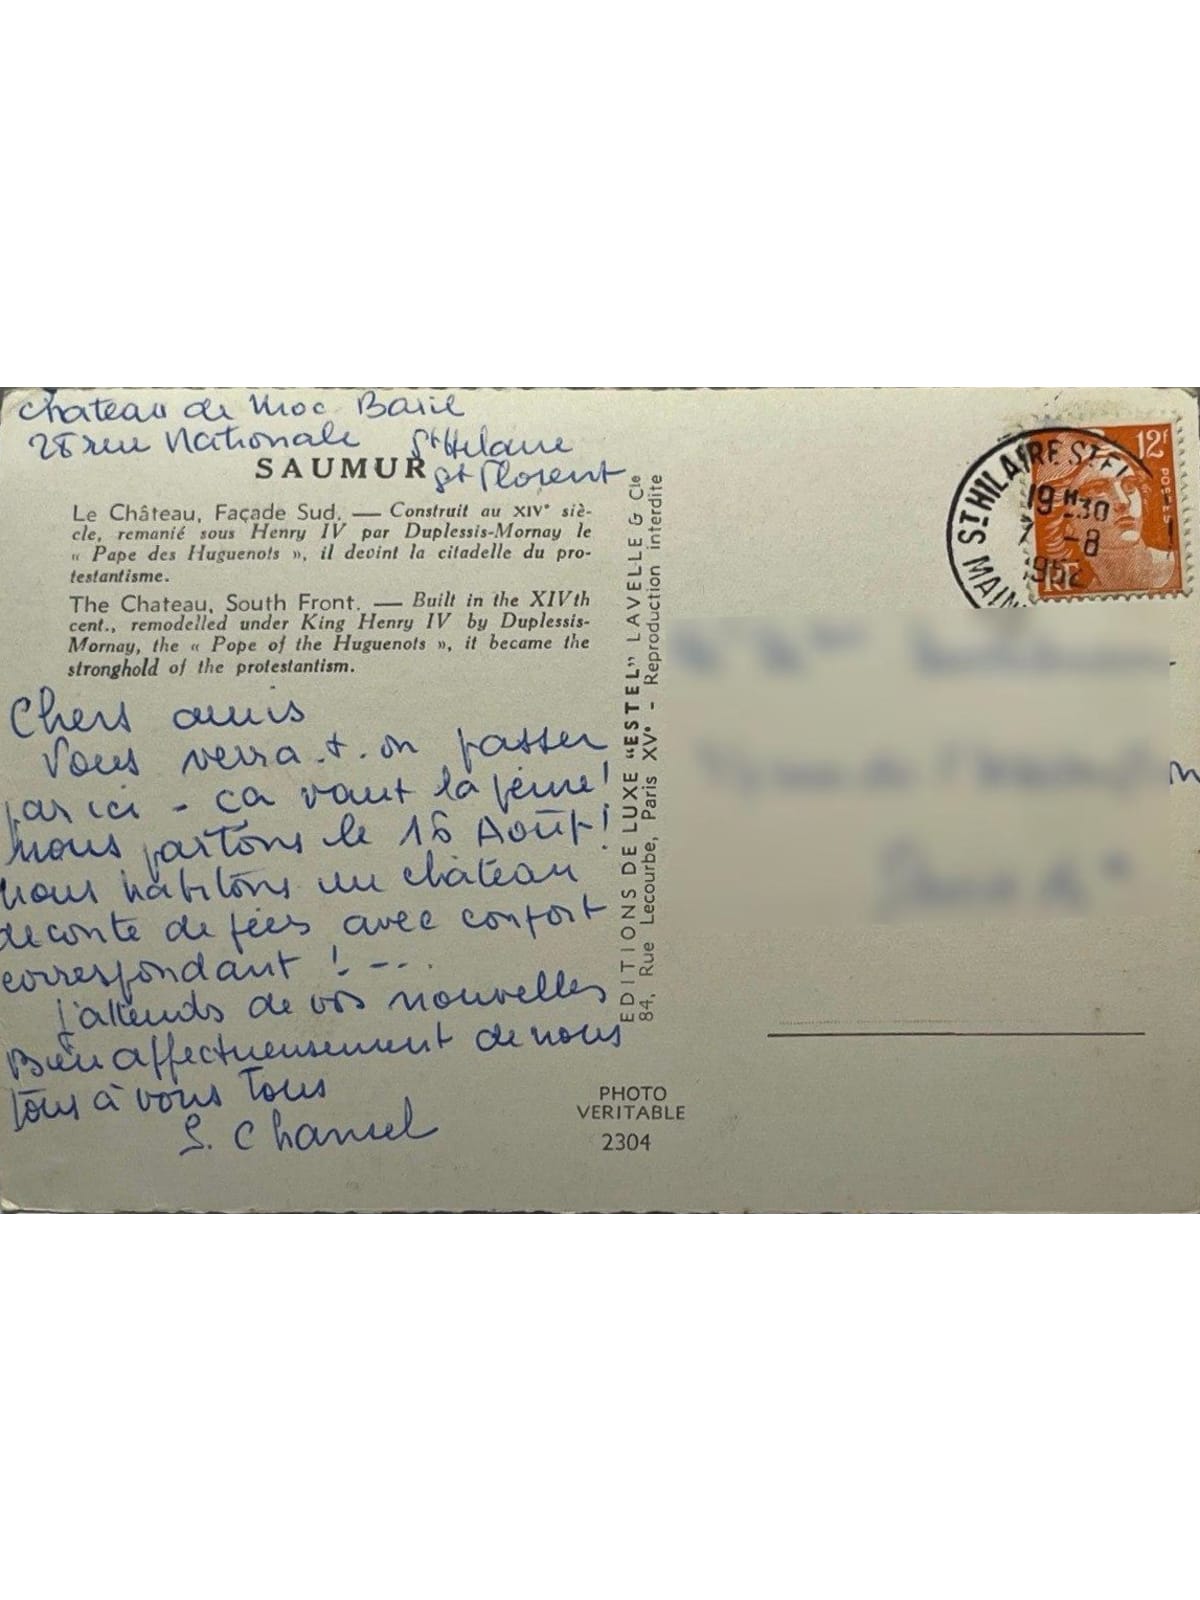 Chateau de Moc Baril
28 rue Nationale St Hilaire
St Florent
SAUMUR
Le Château, Façade Sud. — Construit au XIVe siè-
cle, remanié sous Henry IV par Duplessis-Mornay le
« Pape des Huguenots », il devint la citadelle du pro-
testantisme.
The Chateau, South Front. — Built in the XIVth
cent., remodelled under King Henry IV by Duplessis-
Mornay, the « Pope of the Huguenots », it became the
stronghold of the protestantism.
Chers amis
Vous verra-t-on passer
par ici - ça vaut la peine!
nous partons le 16 Août!
nous habitons un château
de conte de fées avec confort
correspondant ! ---.
J'attends de vos nouvelles
Bien affectueusement de nous
tous à vous tous
S. Chancel
EDITIONS DE LUXE "ESTEL" LAVELLE & Cie
84, Rue Lecourbe, Paris XVe - Reproduction interdite
PHOTO
VERITABLE
2304
ST HILAIRE ST FL
19 H 30
7 -8
1952
MAIN
12f
POSTES